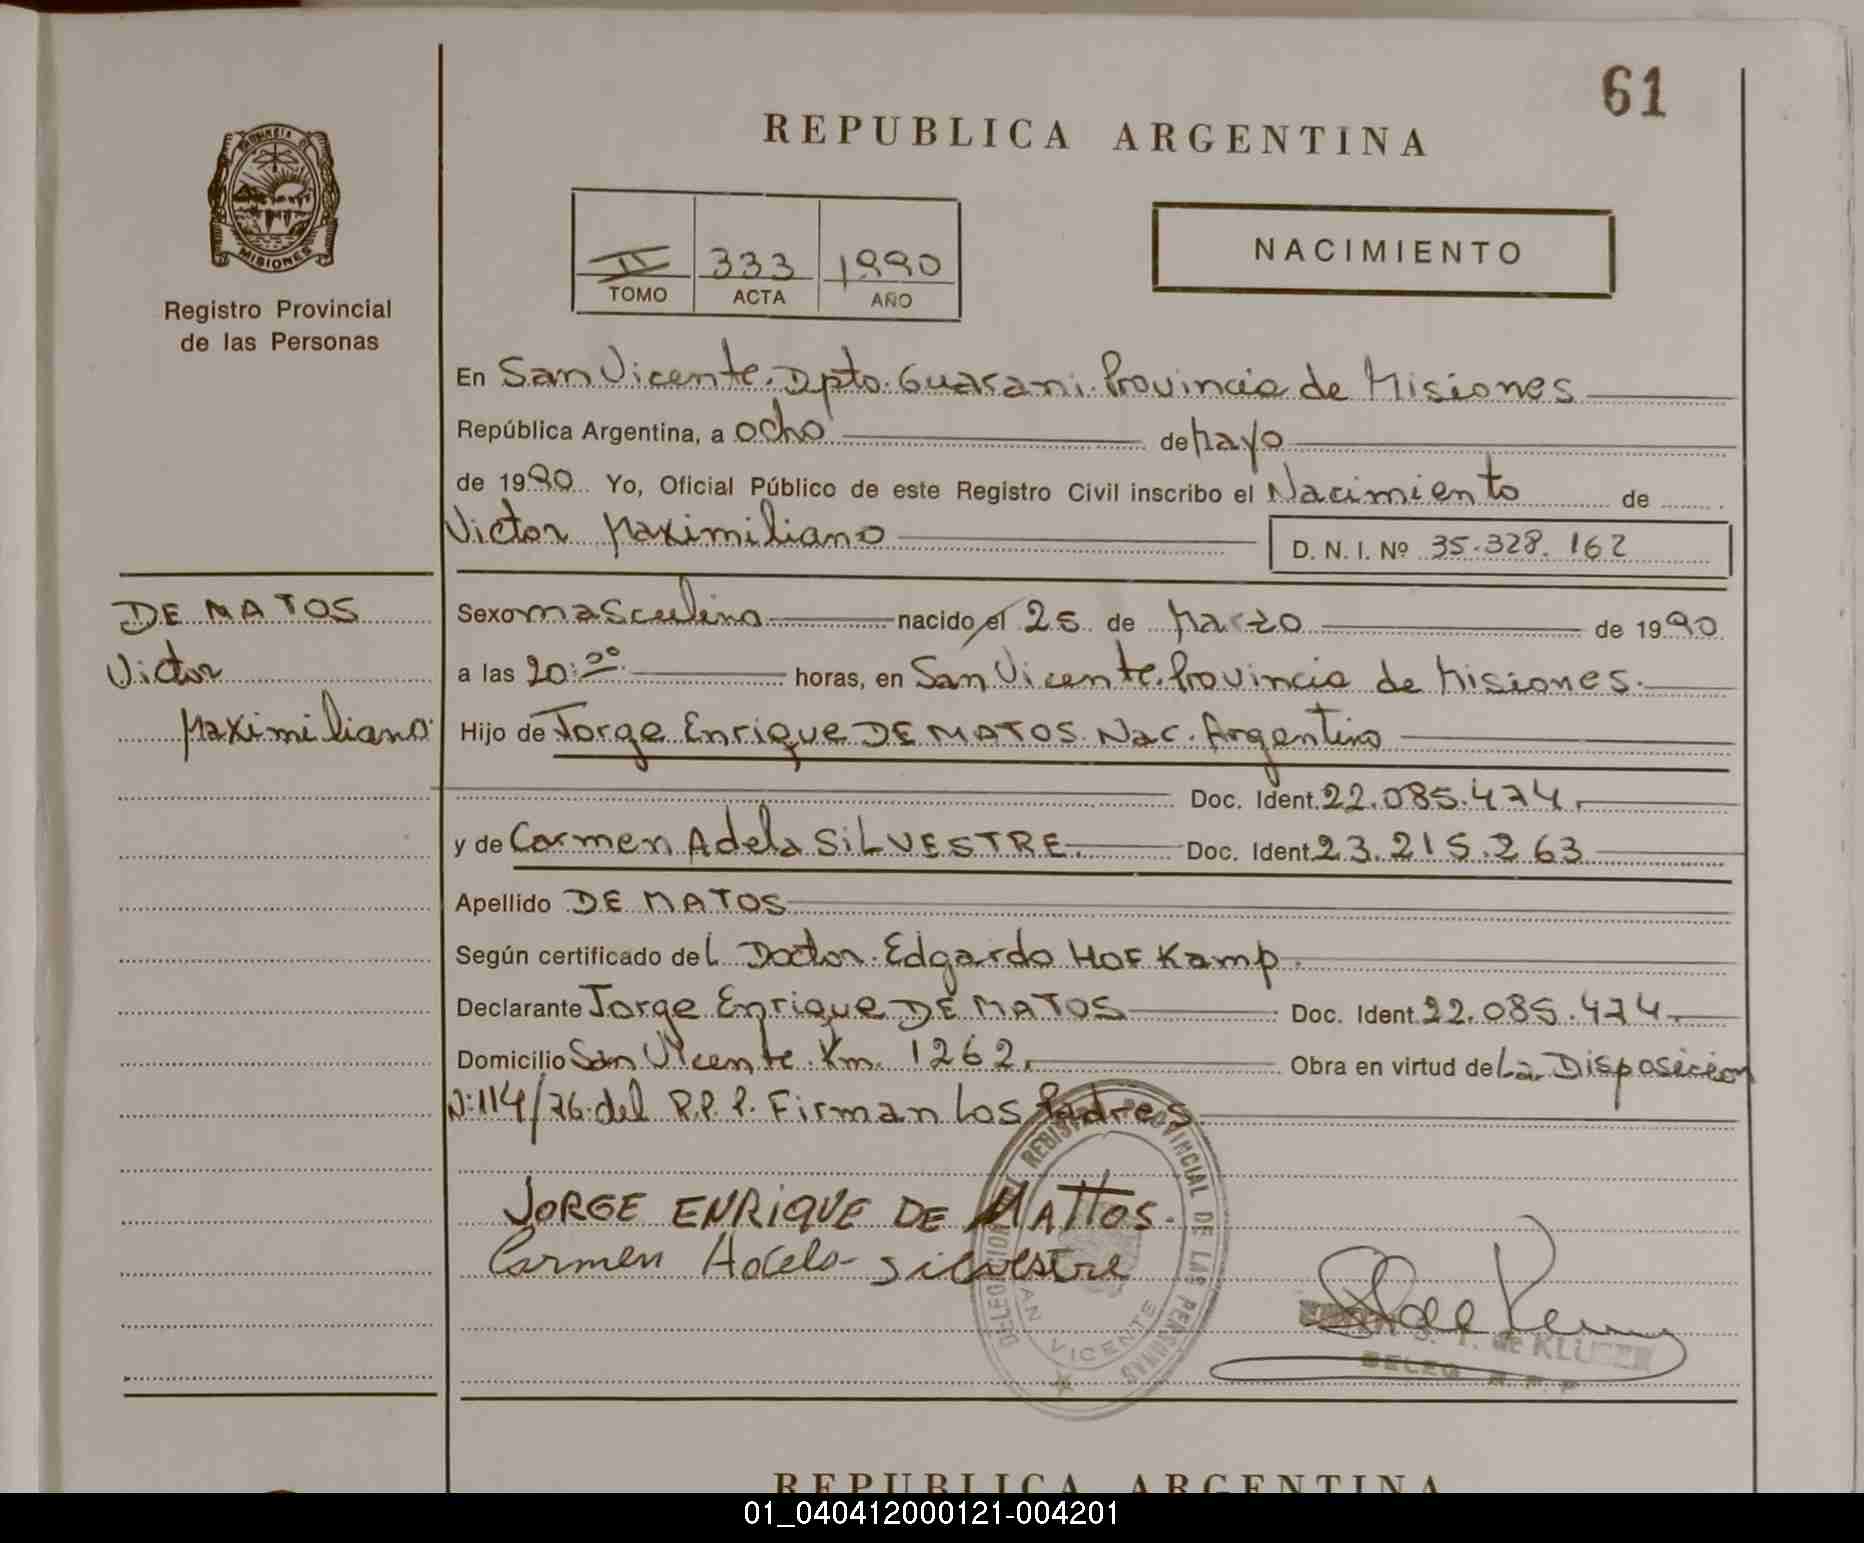 61
REPUBLICA ARGENTINA
PROVINCIA DE
MISIONES
Registro Provincial
de las Personas
II 333 1990
TOMO ACTA AÑO
NACIMIENTO
En San Vicente. Dpto. Guarani. Provincia de Misiones
República Argentina, a ocho de Mayo
de 1990 Yo, Oficial Público de este Registro Civil inscribo el Nacimiento de
Victor Maximiliano
D. N. I. Nº 35.328.162
DE MATOS
Victor
Maximiliano
Sexo masculino nacido el 25 de Marzo de 1990
a las 20:00 horas, en San Vicente. Provincia de Misiones.
Hijo de Jorge Enrique DE MATOS. Nac. Argentino
Doc. Ident. 22.085.474.
y de Carmen Adela SILVESTRE. Doc. Ident. 23.215.263
Apellido DE MATOS
Según certificado del Doctor. Edgardo HOFKamp.
Declarante Jorge Enrique DE MATOS Doc. Ident. 22.085.474.
Domicilio San Vicente. Km. 1262. Obra en virtud de La Disposicion
N:114/76 del R.P.P. Firman Los Padres
JORGE ENRIQUE DE MATTOS.
Carmen Adela Silvestre
DELEGACION REGISTRO PROVINCIAL DE LAS PERSONAS
SAN VICENTE
de KLUGER
DELEG. R. P. P
REPUBLICA ARGENTINA
01_040412000121-004201